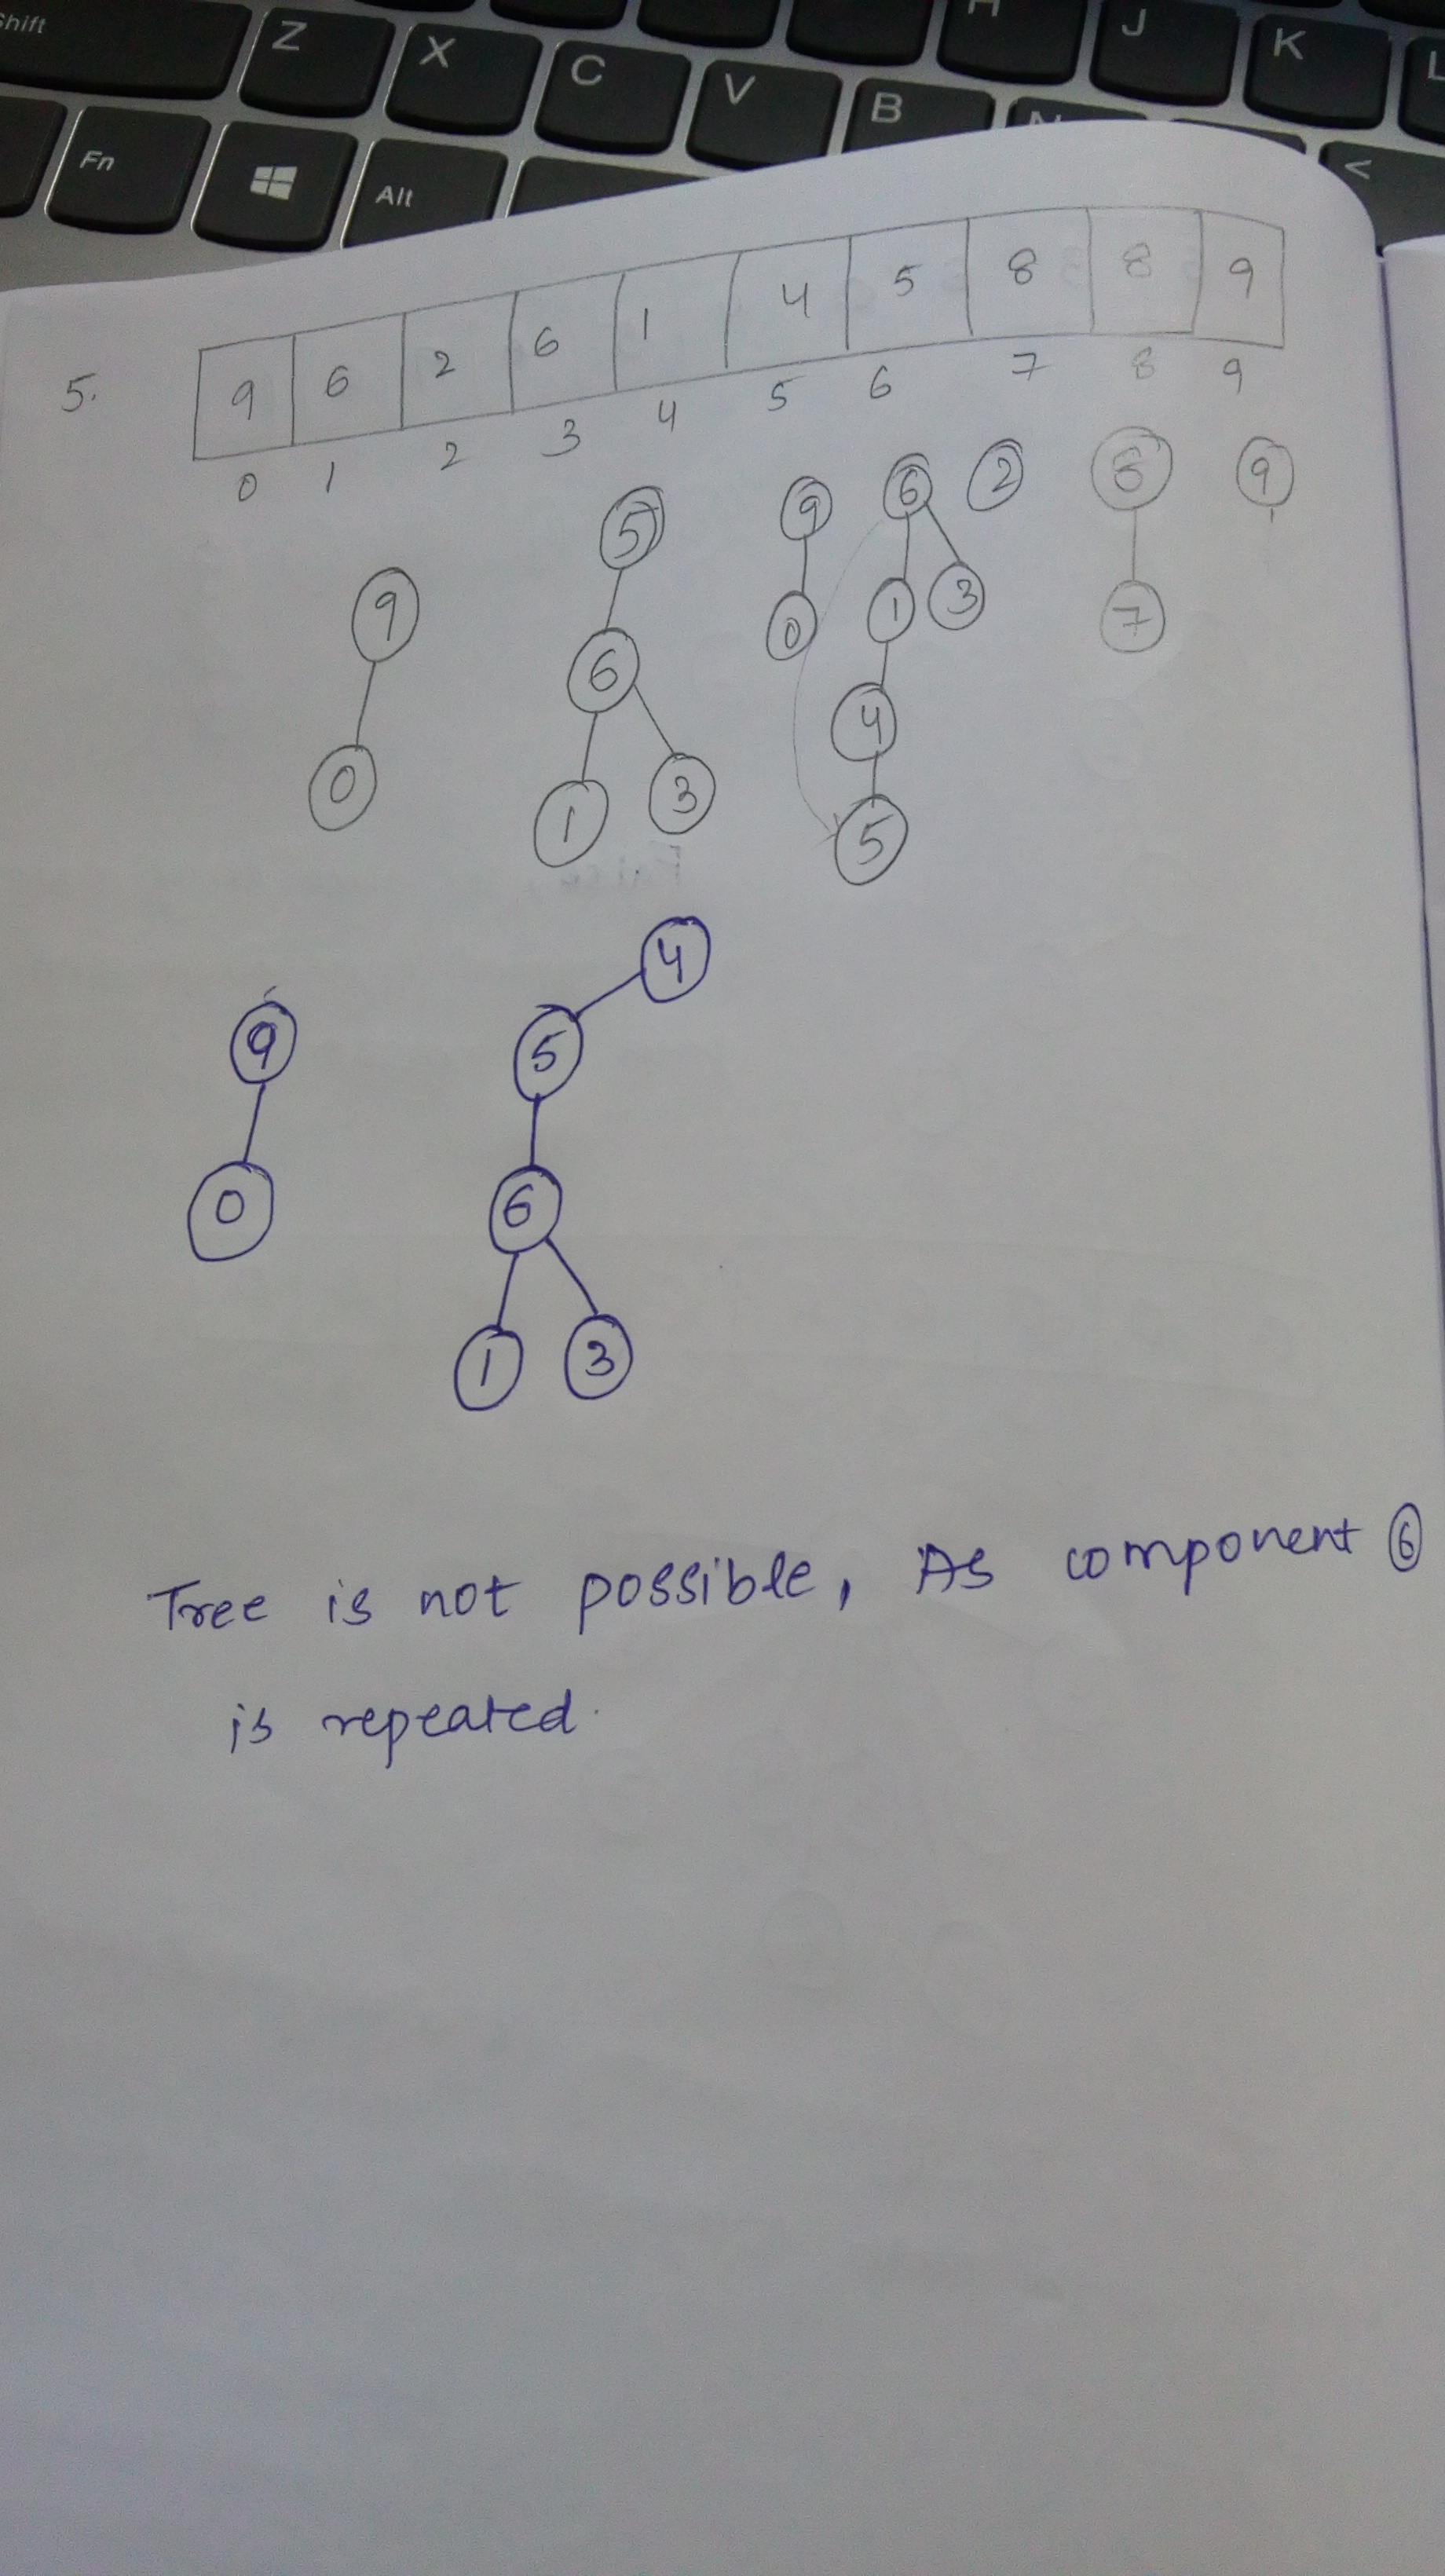 Shift Z X C V B N H J K L
Fn Alt <
5. 9 6 2 6 1 4 5 8 8 9
0 1 2 3 4 5 6 7 8 9
9 5 9 6 2 8 9
0 6 0 1 3 7
1 3 4
5
9 4
0 5
6
1 3
Tree is not possible, As component 6
is repeated.